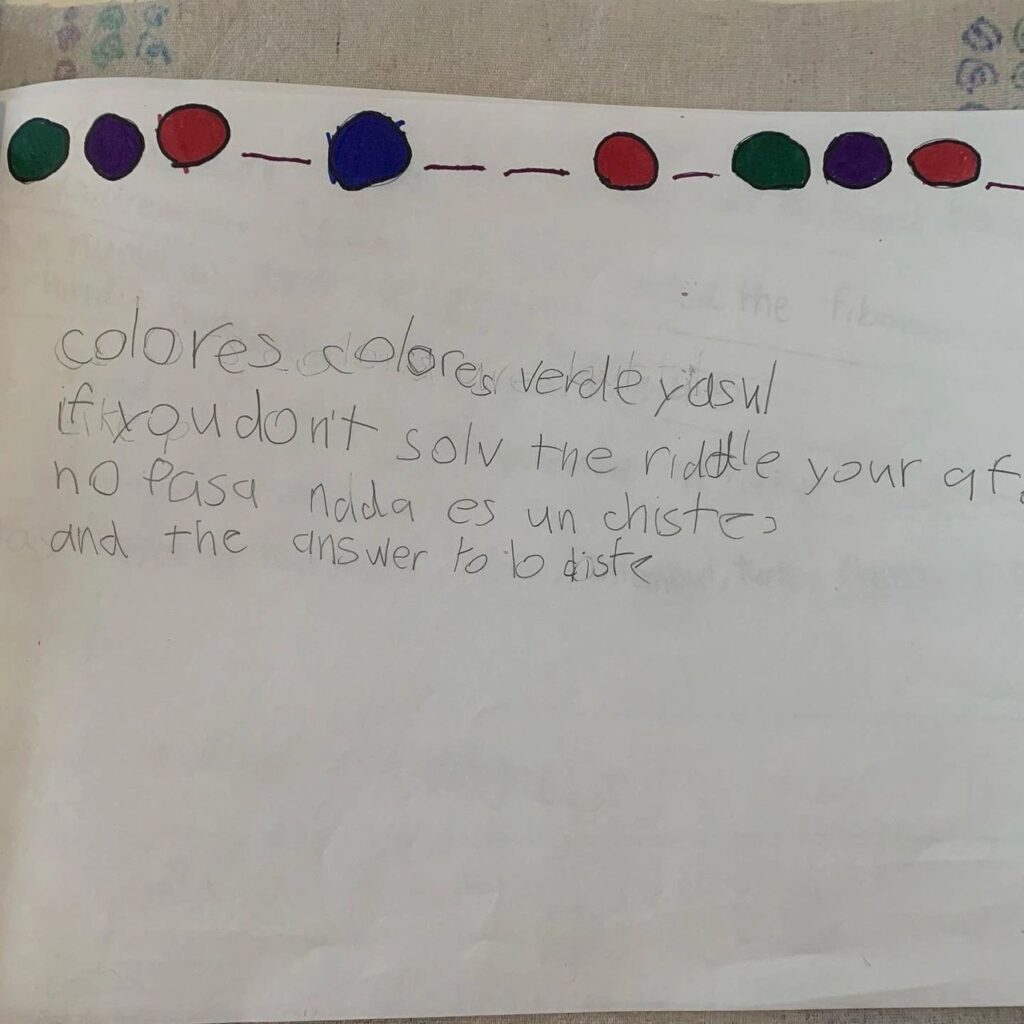 colores colores verde yasul
if you don't solv the riddle your
no pasa nada es un chiste
and the answer to
the fibon